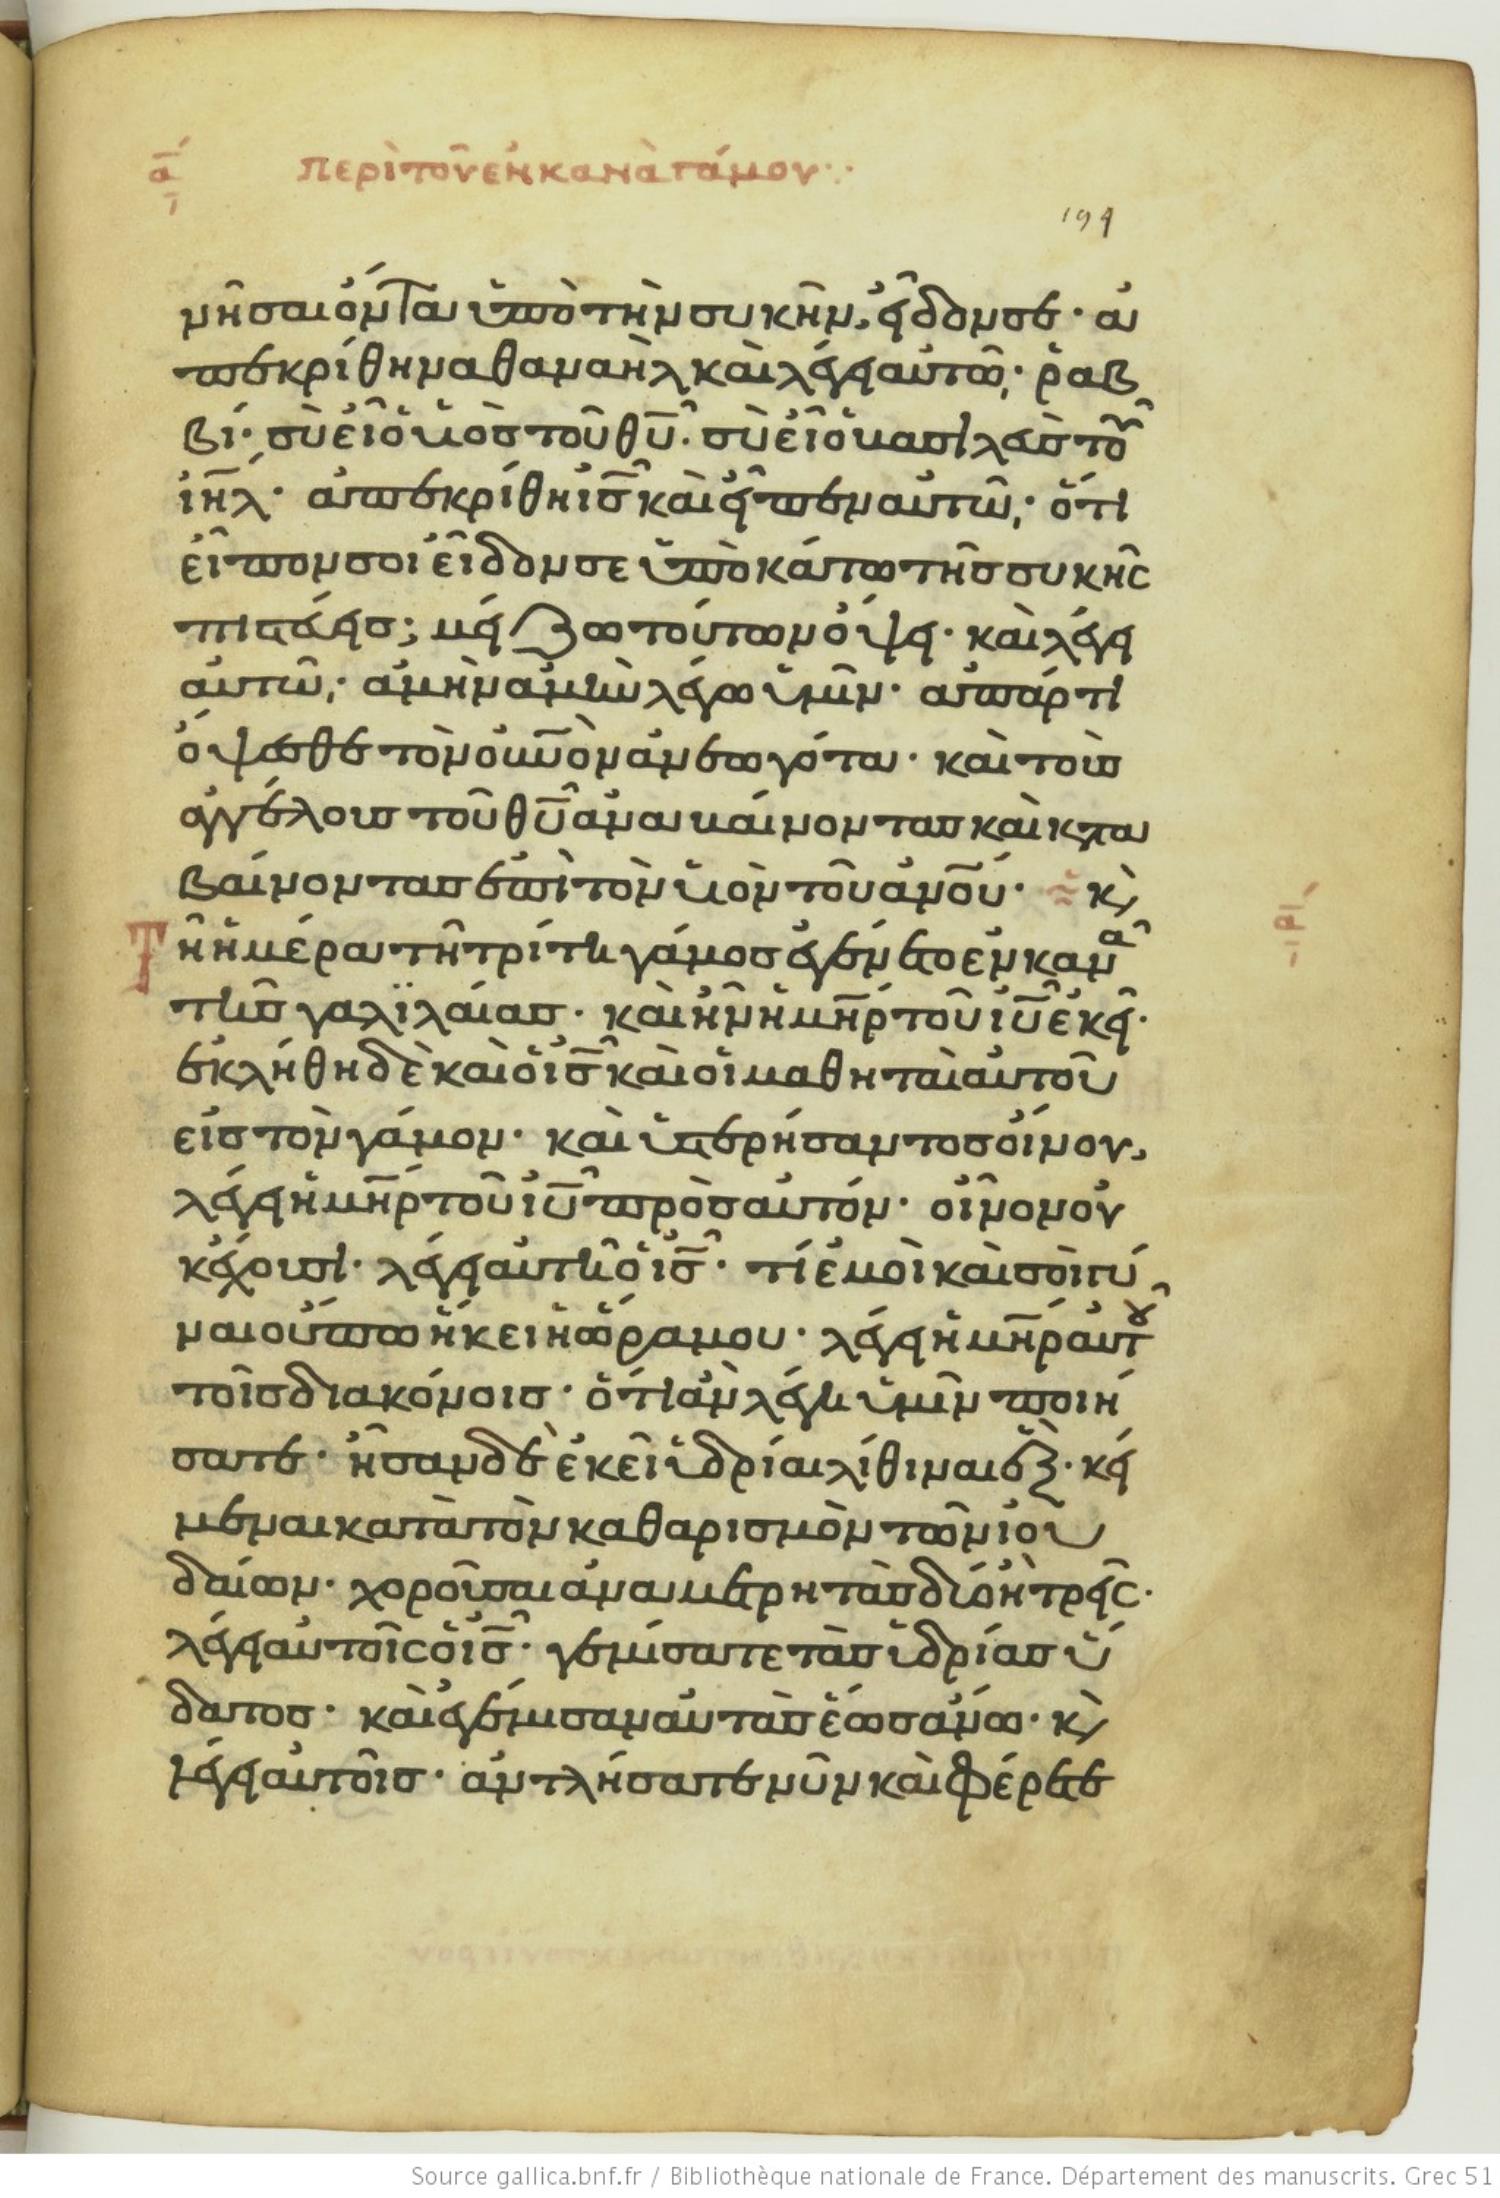 α
περὶ τοῦ ἐν κανὰ γάμου
199
νῆσαι ὄντα ὑπὸ τὴν συκῆν, εἶδόν σε· ἀ
πεκρίθη ναθαναὴλ καὶ λέγει αὐτῶ· ῥαβ
βί· σὺ εἶ ὁ υἱὸς τοῦ θῦ. σὺ εἶ ὁ βασιλεὺς τοῦ
ιῆλ· ἀπεκρίθη ὁ ις καὶ εἶπεν αὐτῶ· ὅτι
εἶπον σοι εἶδον σε ὑποκάτω τῆς συκῆς
πιστεύεις; μείζω τούτων ὄψει· καὶ λέγει
αὐτῶ· ἀμὴν ἀμὴν λέγω ὑμῖν· ἀπάρτι
ὄψεσθε τὸν οὐνον ἀνεωγότα· καὶ τοὺς
ἀγγέλους τοῦ θῦ ἀναβαίνοντας καὶ κατα
βαίνοντας ἐπὶ τὸν υἱὸν τοῦ ἀνου· κ
Τῆ ἡμέρα τῆ τρίτη γάμος ἐγένετο ἐν κανᾶ
τῆς γαλϊλαίας· καὶ ἦν ἡ μηρ τοῦ ιυ ἐκεῖ·
ἐκλήθη δὲ καὶ ὁ ις καὶ οἱ μαθηταὶ αὐτοῦ
εἰς τὸν γάμον· καὶ ὑστερήσαντος οἴνου,
λέγει ἡ μηρ τοῦ ιυ πρὸς αὐτόν· οἶνον οὐ
κ ἔχουσι· λέγει αὐτῆ ὁ ις· τί ἐμοὶ καὶ σοὶ γύ
ναι οὔπω ἥκει ἡ ὥρα μου· λέγει ἡ μηρ αὐτοῦ
τοῖς διακόνοις· ὅτι ἂν λέγη ὑμῖν ποιή
σατε· ἦσαν δὲ ἐκεῖ ὑδρίαι λίθιναι ἓξ· κεί
μεναι κατὰ τὸν καθαρισμὸν τῶν ἰου
δαίων· χοροῦσαι ἀνα μετρητὰς δύο ἢ τρεῖς·
λέγει αὐτοῖς ὁ ις· γεμίσατε τὰς ὑδρίας ὕ
δατος· καὶ ἐγέμισαν αὐτὰς ἕως ἄνω· κ
λέγει αὐτοῖς· ἀντλήσατε νῦν καὶ φέρετε
Source gallica.bnf.fr / Bibliothèque nationale de France. Département des manuscrits. Grec 51